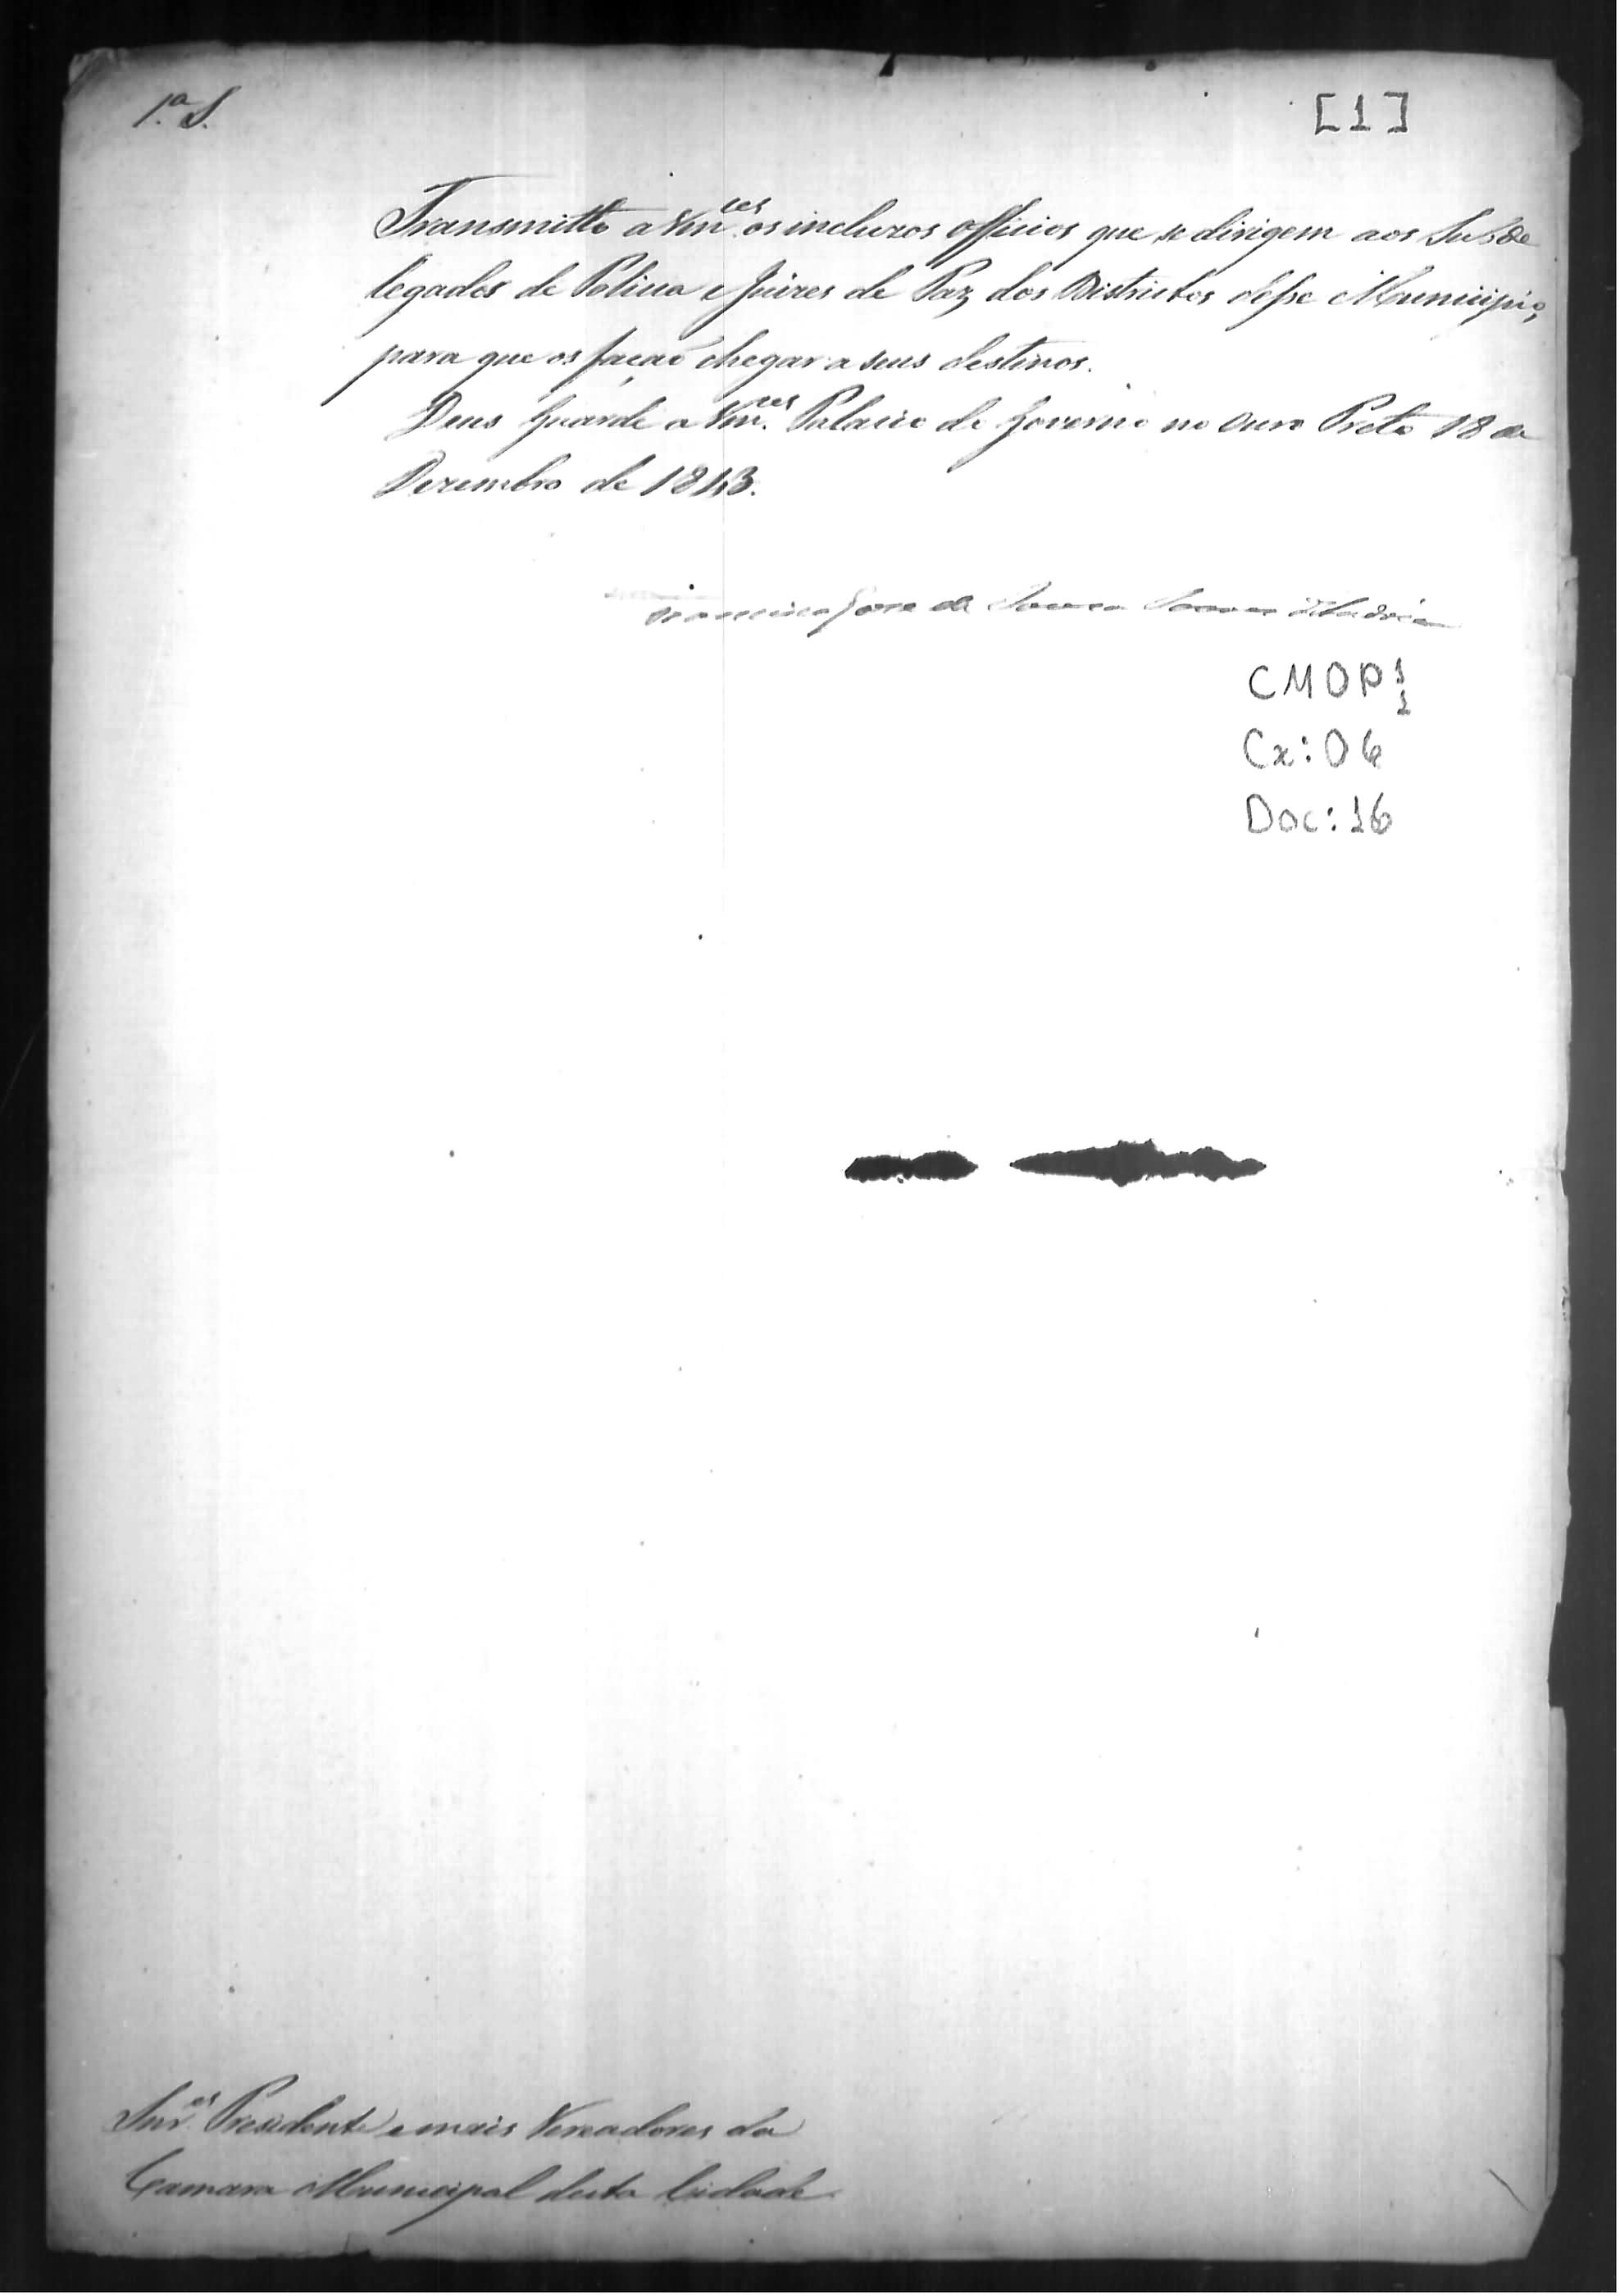 1.ª S.
[1]
Transmitto a Vm.ces os incluzos Officios que se dirigem aos Subde
legados de Policia e Juizes de Paz dos Districtos desse Municipio,
para que os façaõ chegar a seus destinos.
Deus Guarde a Vm.ces Palacio do Governo no Ouro Preto 18 de
Dezembro de 1843.
Francisco Jose de Souza Soares d'Andréa
CMOP 1/1
Cx: 06
Doc: 16
Snr.es Presidente e mais Vereadores da
Camara Municipal desta Cidade